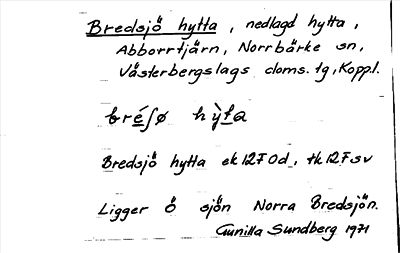 Bredsjö hytta, nedlagd hytta,
Abborrtjärn, Norrbärke sn,
Västerbergslags doms. tg, Koppl.
bréʃø hỳta
Bredsjö hytta ek 12F0d, tk 12F sv
Ligger Ö sjön Norra Bredsjön.
Gunilla Sundberg 1971